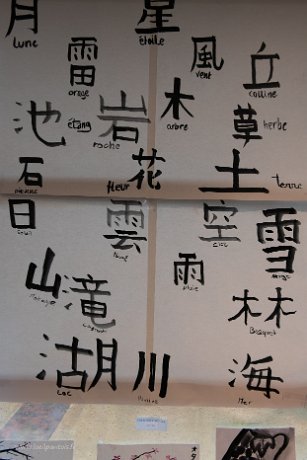 月 星
lune étoile
雷 風 丘
orage vent colline
池 岩 木 草
étang roche arbre herbe
石 花 土
pierre fleur terre
日 雲 空 雪
soleil ciel neige
山 滝 雨 林
pluie
湖 川 海
Lac Mer